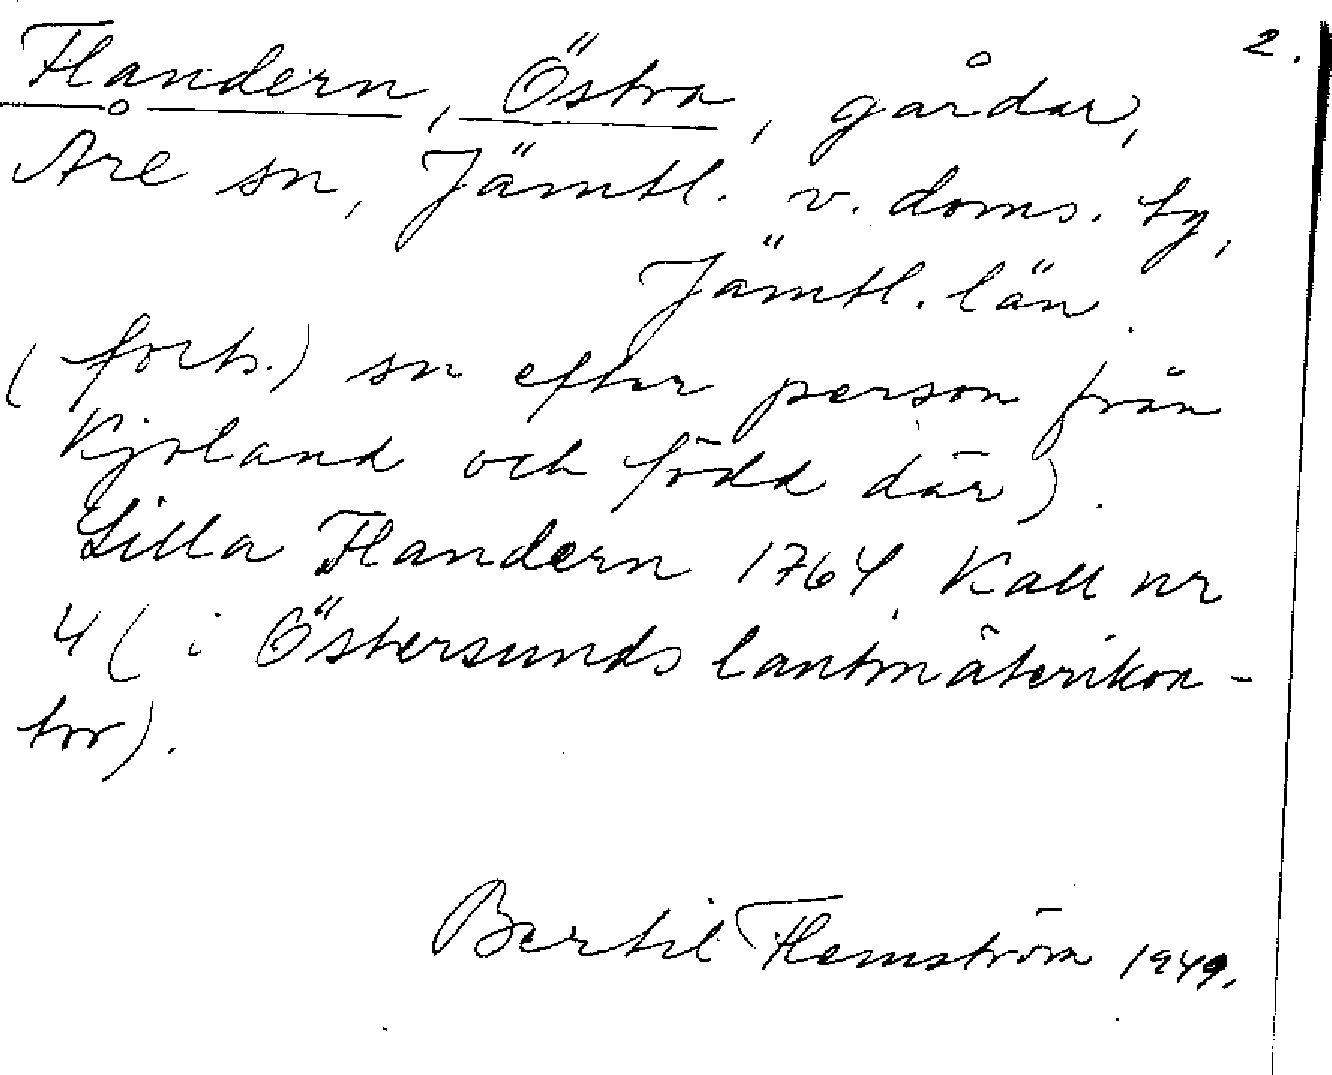 2.
Flandern, Östra, gårdar,
Åre sn, Jämtl. v. doms. tg,
Jämtl. län.
(forts.) sn efter person från
Kjoland och född där).
Lilla Flandern 1764, Kall nr
4 (i Östersunds lantmäterikon-
tor).
Bertil Flemström 1949.